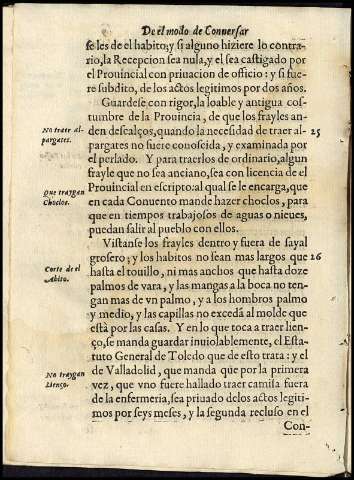 De el modo de Conuersar
se les de el habito; y si alguno hiziere lo contra-
rio, la Recepcion sea nula, y el sea castigado por
el Prouincial con priuacion de officio: y si fue-
re subdito, de los actos legitimos por dos años.
Guardese con rigor, la loable y antigua cos-
tumbre de la Prouincia, de que los frayles an-
No traer al-
pargates.
den descalços, quando la necesidad de traer al-
25
pargates no fuere conoscida, y examinada por
el perlado. Y para traerlos de ordinario, algun
frayle que no sea anciano, sea con licencia de el
Que traygan
Choclos.
Prouincial en escripto: al qual se le encarga, que
en cada Conuento mande hazer choclos, para
que en tiempos trabajosos de aguas o nieues,
puedan salir al pueblo con ellos.
Vistanse los frayles dentro y fuera de sayal
grosero; y los habitos no sean mas largos que
26
Corte de el
Abito.
hasta el touillo, ni mas anchos que hasta doze
palmos de vara, y las mangas a la boca no ten-
gan mas de vn palmo, y a los hombros palmo
y medio, y las capillas no excedã al molde que
està por las casas. Y en lo que toca a traer lien-
ço, se manda guardar inuiolablemente, el Esta-
tuto General de Toledo que de esto trata: y el
No traygan
Lienço.
de Valladolid, que manda que por la primera
vez, que vno fuere hallado traer camisa fuera
de la enfermeria, sea priuado delos actos legiti-
mos por seys meses, y la segunda recluso en el
Con-